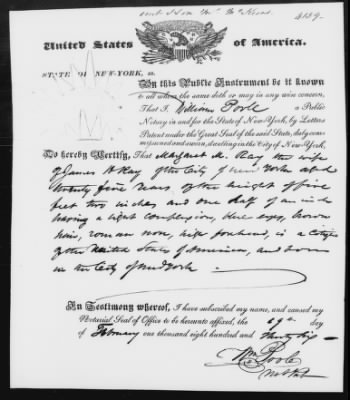 4139
United States of America.
STATE OF NEW-YORK, ss.
By this Public Instrument be it known
to all whom the same doth or may in any wise concern,
That I, William Poole a Public
Notary in and for the State of New-York, by Letters
Patent under the Great Seal of the said State, duly com-
missioned and sworn, dwelling in the City of New-York,
Do hereby Certify, That Margaret M. Ray the wife
of James A Ray of the City of New York aged
twenty five years, of the height of five
feet two inches and one half of an inch
having a light complexion, blue eyes, brown
hair, roman nose, high forehead, is a Citizen
of the United States of America, and born
in the City of New York
In Testimony whereof, I have subscribed my name, and caused my
Notarial Seal of Office to be hereunto affixed, the 19th day
of February one thousand eight hundred and thirty six
Wm Poole
Not Pub